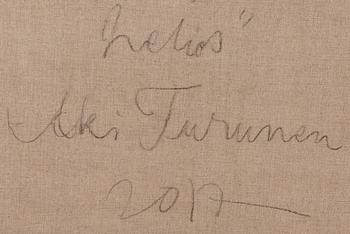 Helios"
Aki Turunen
2017